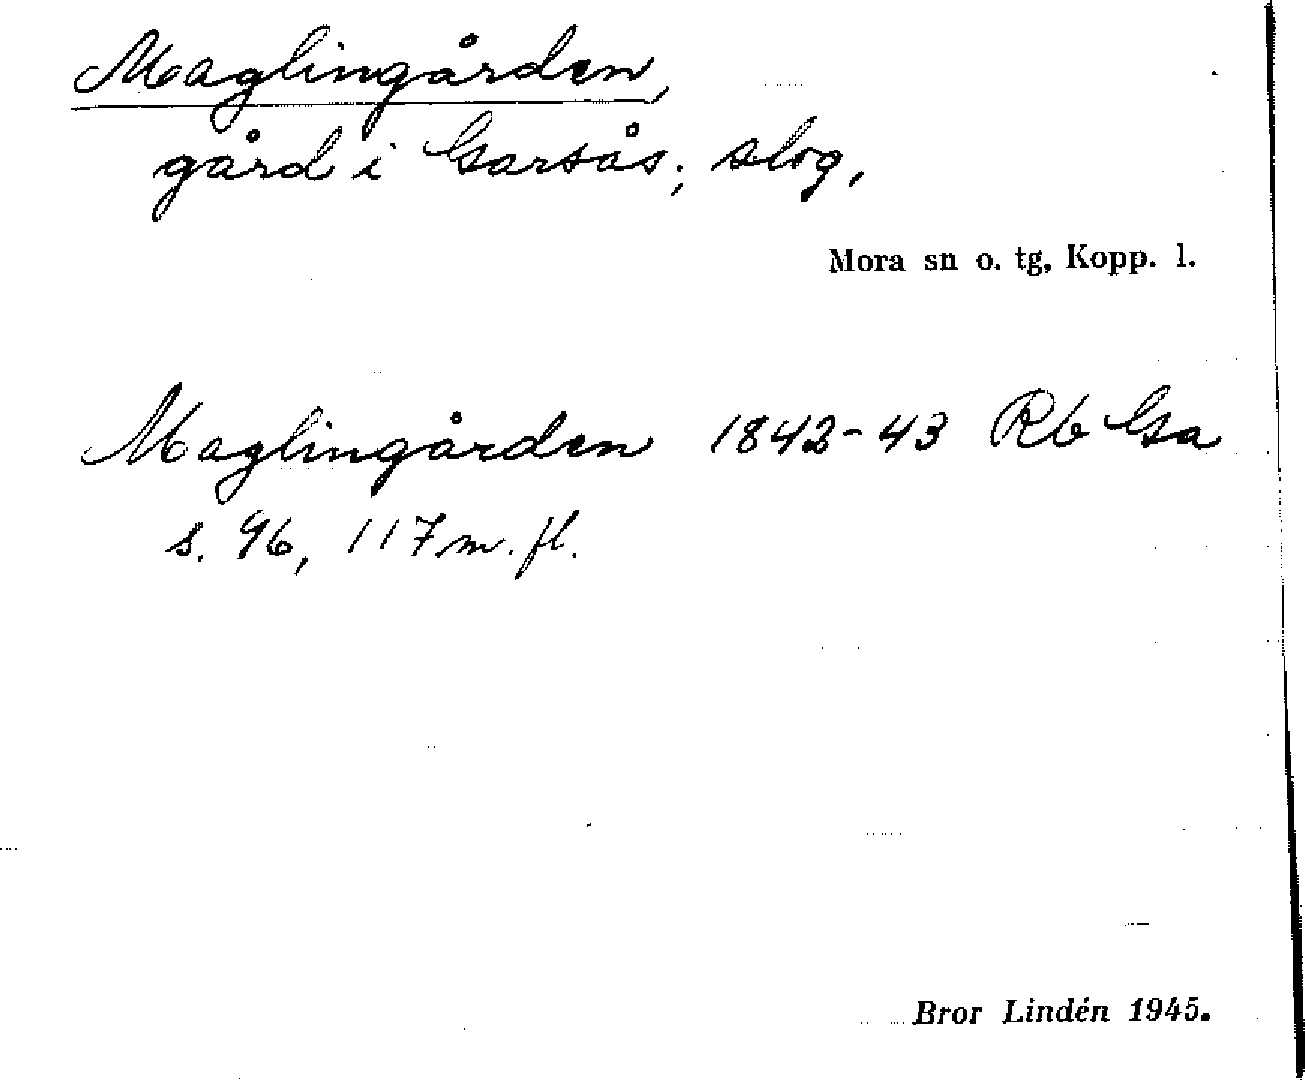 Maglingården,
gård i Garsås; slog,
Mora sn o. tg, Kopp. l.
Maglingården 1842-43 Rb Ga
s. 96, 117 m. fl.
Bror Lindén 1945.